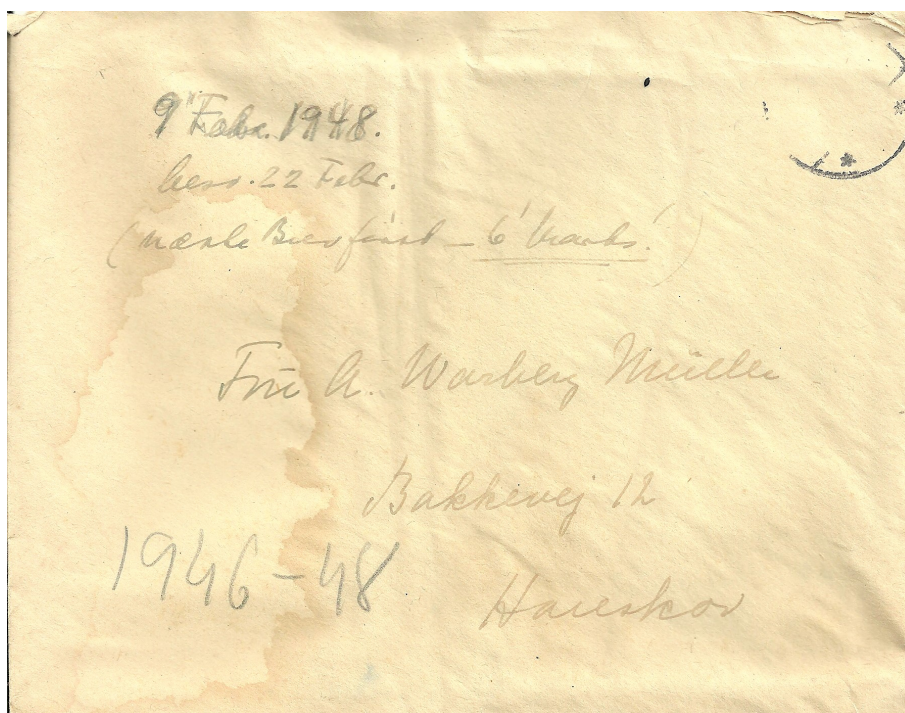 9' Febr. 1948.
besv. 22 Febr.
(næste Brev først – 6' Marts!)
Fru A. Warberg Müller
Bakkevej 12
Hareskov
1946–48